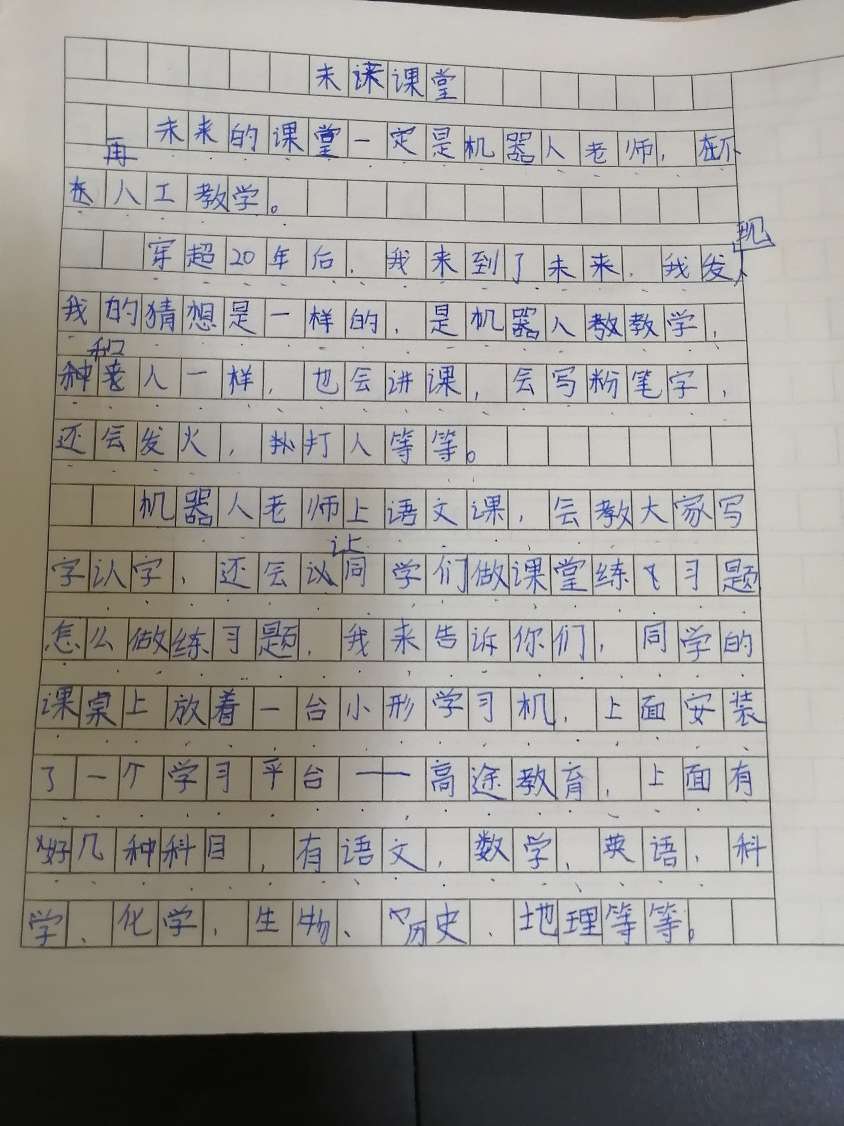 未课课堂
未来的课堂一定是机器人老师，在不
再
在人工教学。
穿超20年后，我来到了未来，我发
现
我的猜想是一样的，是机器人教教学，
和
种老人一样，也会讲课，会写粉笔字，
还会发火，打人等等。
机器人老师上语文课，会教大家写
让
字认字，还会以同学们做课堂练习题
怎么做练习题，我来告诉你们，同学的
课桌上放着一台小形学习机，上面安装
了一个学习平台——高途教育，上面有
好几种科目，有语文，数学，英语，科
学、化学，生物、历史、地理等等。